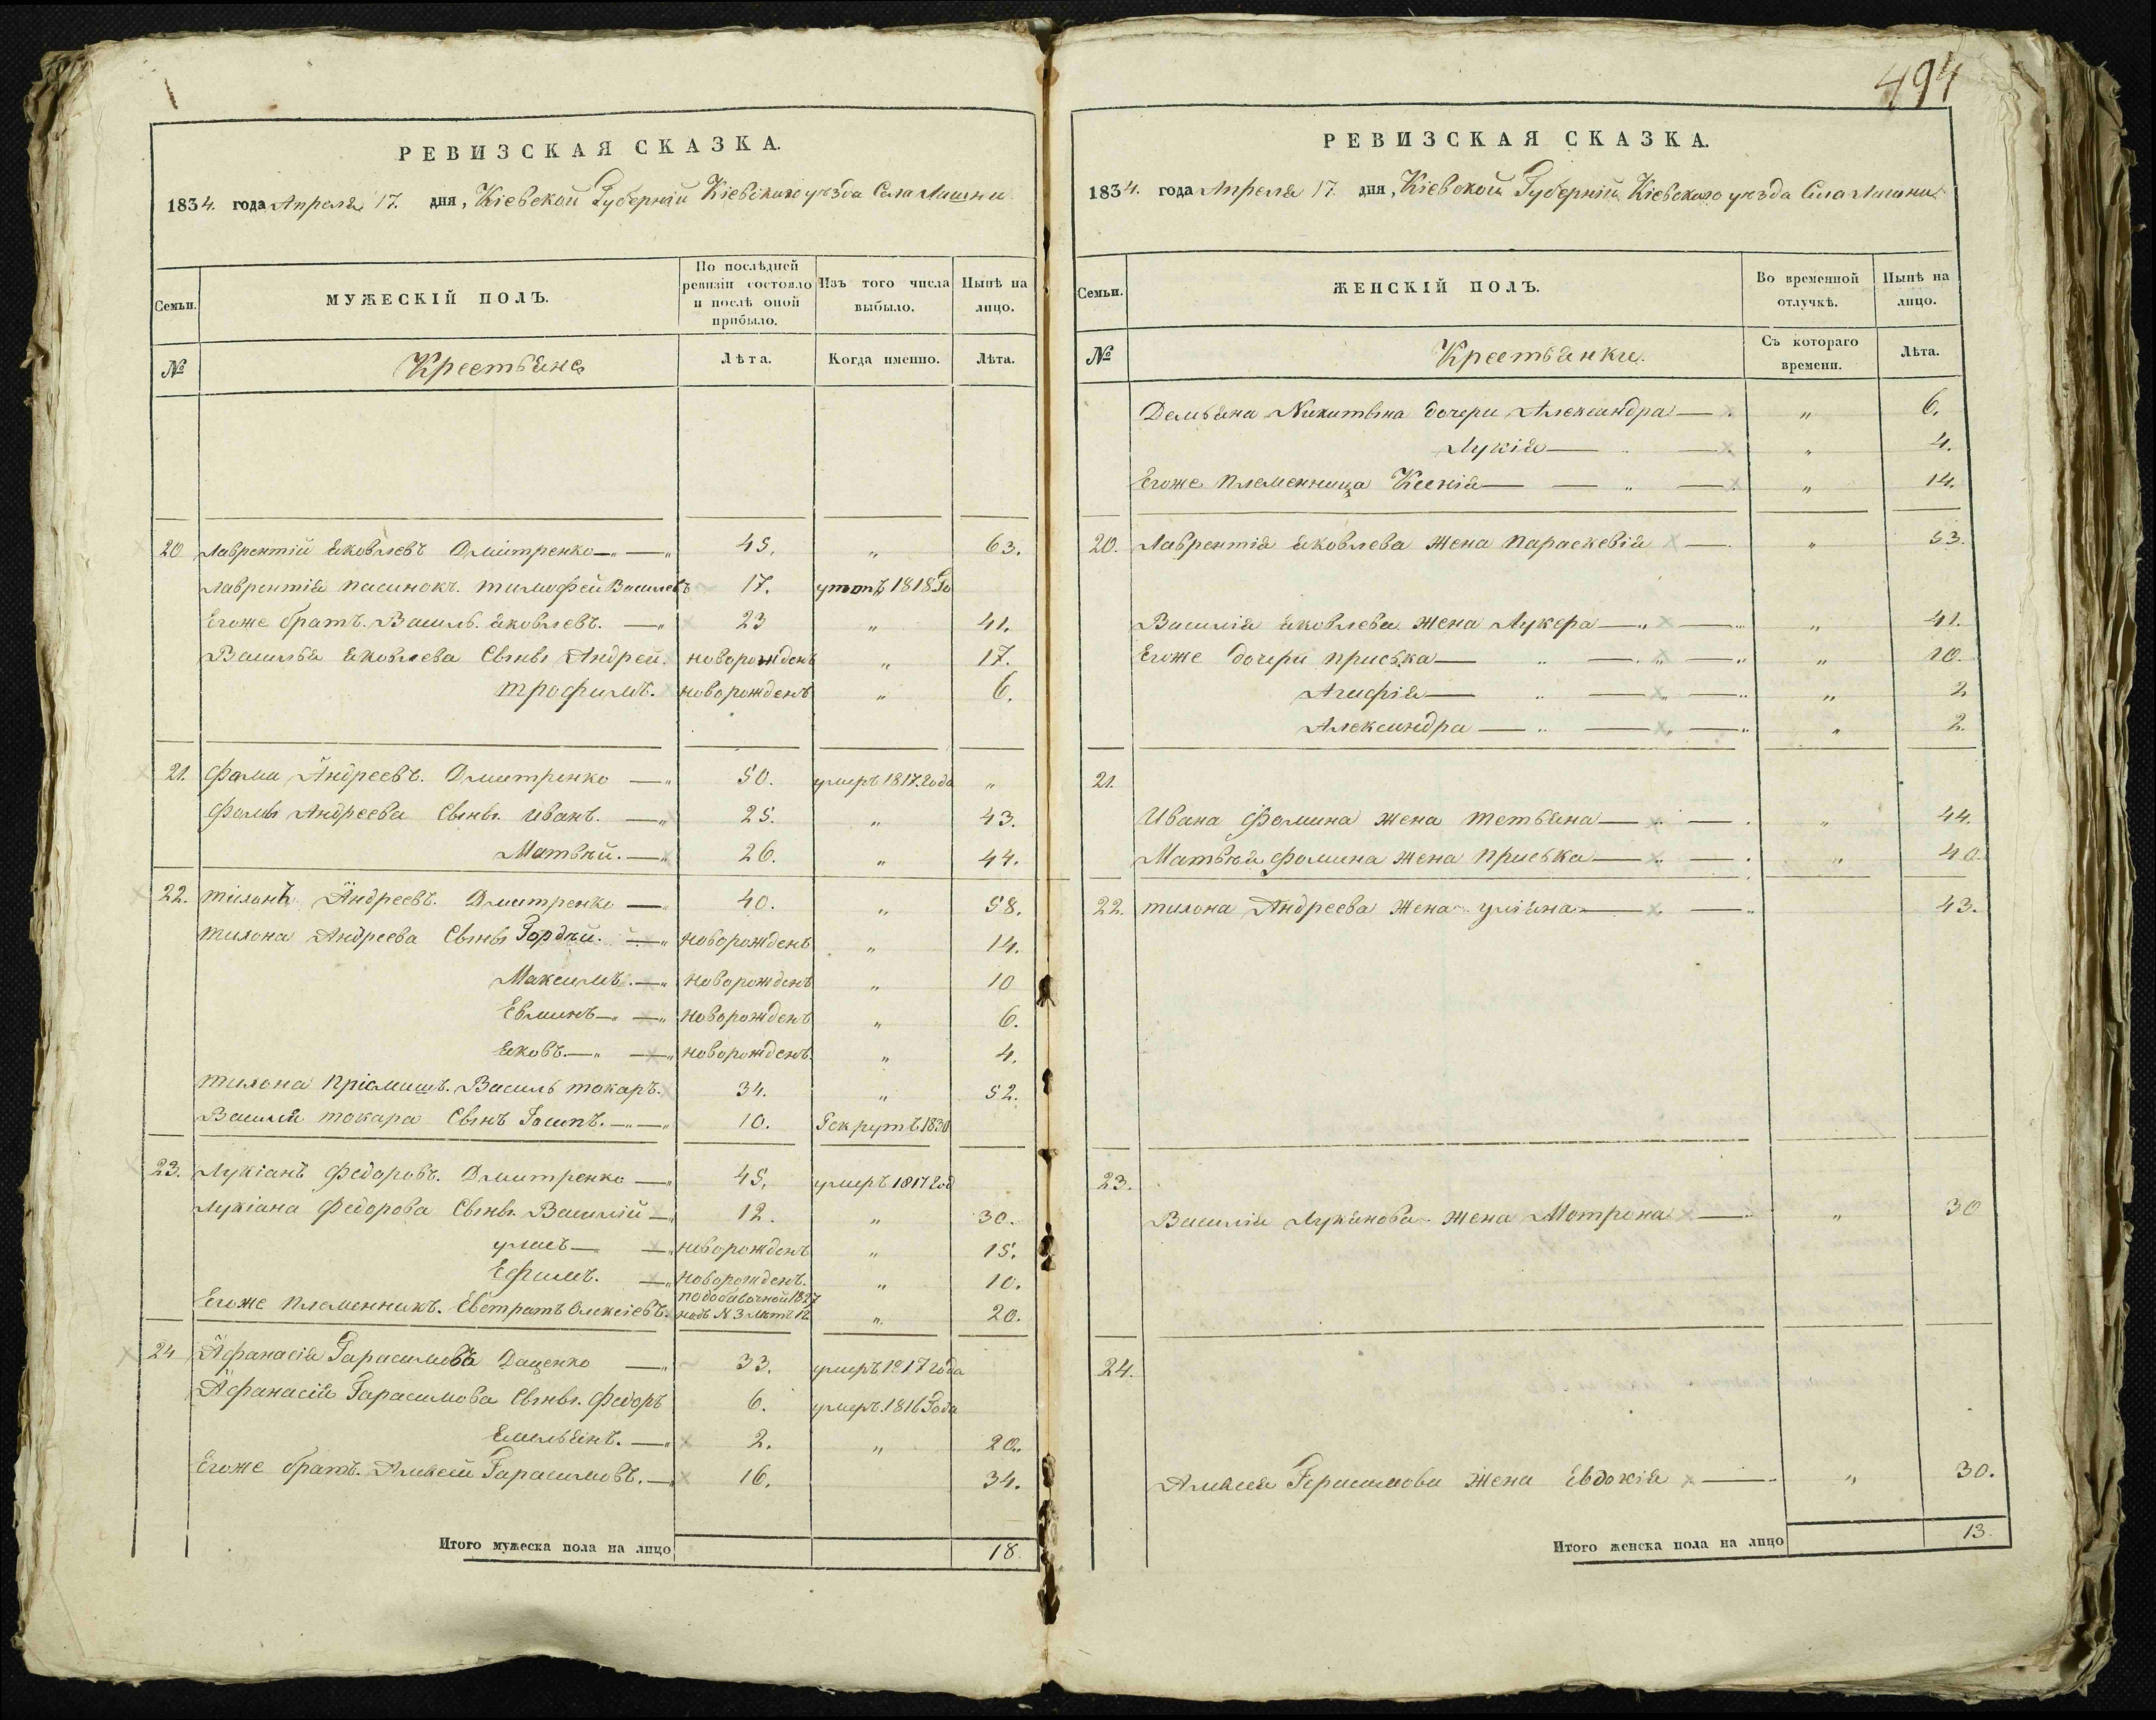 РЕВИЗСКАЯ СКАЗКА.
1834. года Апреля 17. дня, Кіевской Губерніи Кіевскаго уѣзда Села
Семьи. МУЖЕСКІЙ ПОЛЪ. По послѣдней ревизіи состояло и послѣ оной прибыло. Изъ того числа выбыло. Нынѣ на лицо.
№ Крестьяне Лѣта. Когда именно. Лѣта.
20 Лаврентій Яковлевъ Дмитренко 45. „ 63.
Лаврентія пасинокъ. тимофей Васильевъ 17. 1818
Егоже братъ. Василь. Яковлевъ. 23 „ 41.
Василья Яковлева Сыны Андрей. новорожденъ „ 17.
трофимъ. новорожденъ „ 6.
21. Фама Андреевъ. Дмитренко 50. умеръ 1817 года „
Фомы Андреева Сыны. иванъ. 25. „ 43.
Матвѣй. 26. „ 44.
22. тихонъ Андреевъ. Дмитренко 40. „ 58.
тихона Андреева Сыны Гордѣй. новорожденъ „ 14.
Максимъ. новорожденъ „ 10
новорожденъ „ 6.
Яковъ. новорожденъ. „ 4.
тихона пріемишъ. Василь токаръ. 34. „ 52.
Василя токара Сынъ Іосипъ. 10. Рекрутъ 1830
23. Лукіанъ Федоровъ. Дмитренко 45. умеръ 1817 год
Лукіана Федорова Сыны. Василій 12. „ 30.
новорожденъ „ 15.
Ефимъ. новорожденъ. „ 10.
Егоже племенникъ. Евстратъ Олексіевъ. подобавочной 1827 подъ № 3 лѣтъ 12 „ 20.
24 Афанасія Гарасимовъ Даценко 33. умеръ 1817 года
Афанасія Гарасимова Сыны. Федоръ 6. умеръ. 1816 Года
Емельянъ. 2. „ 20.
Егоже братъ. Алексей Гарасимовъ. 16. 34.
Итого мужеска пола на лицо 18.
494
РЕВИЗСКАЯ СКАЗКА.
1834. года Апреля 17. дня, Кіевской Губерніи Кіевскаго уѣзда Села
Семьи. ЖЕНСКІЙ ПОЛЪ. Во временной отлучкѣ. Нынѣ на лицо.
№ Крестьянки. Съ котораго времени. Лѣта.
Демьяна Никитына дочери Александра „ 6.
Лукія „ 4.
Егоже племенница Ксенія „ 14.
20. Лаврентія Яковлева жена параскевія „ 53.
Василія Яковлева жена Лукера „ 41.
Егоже дочери приська „ 10.
Агафія „ 2
Александра „ 2.
21.
Ивана Фомина жена тетьяна „ 44.
Матвѣя Фомина жена приська „ 40
22. тихона Андреева жена уліяна 43.
23.
Василія Лукянова жена Мотрона „ 30
24.
Алексея Герасимова жена Евдокія „ 30.
Итого женска пола на лицо 13.